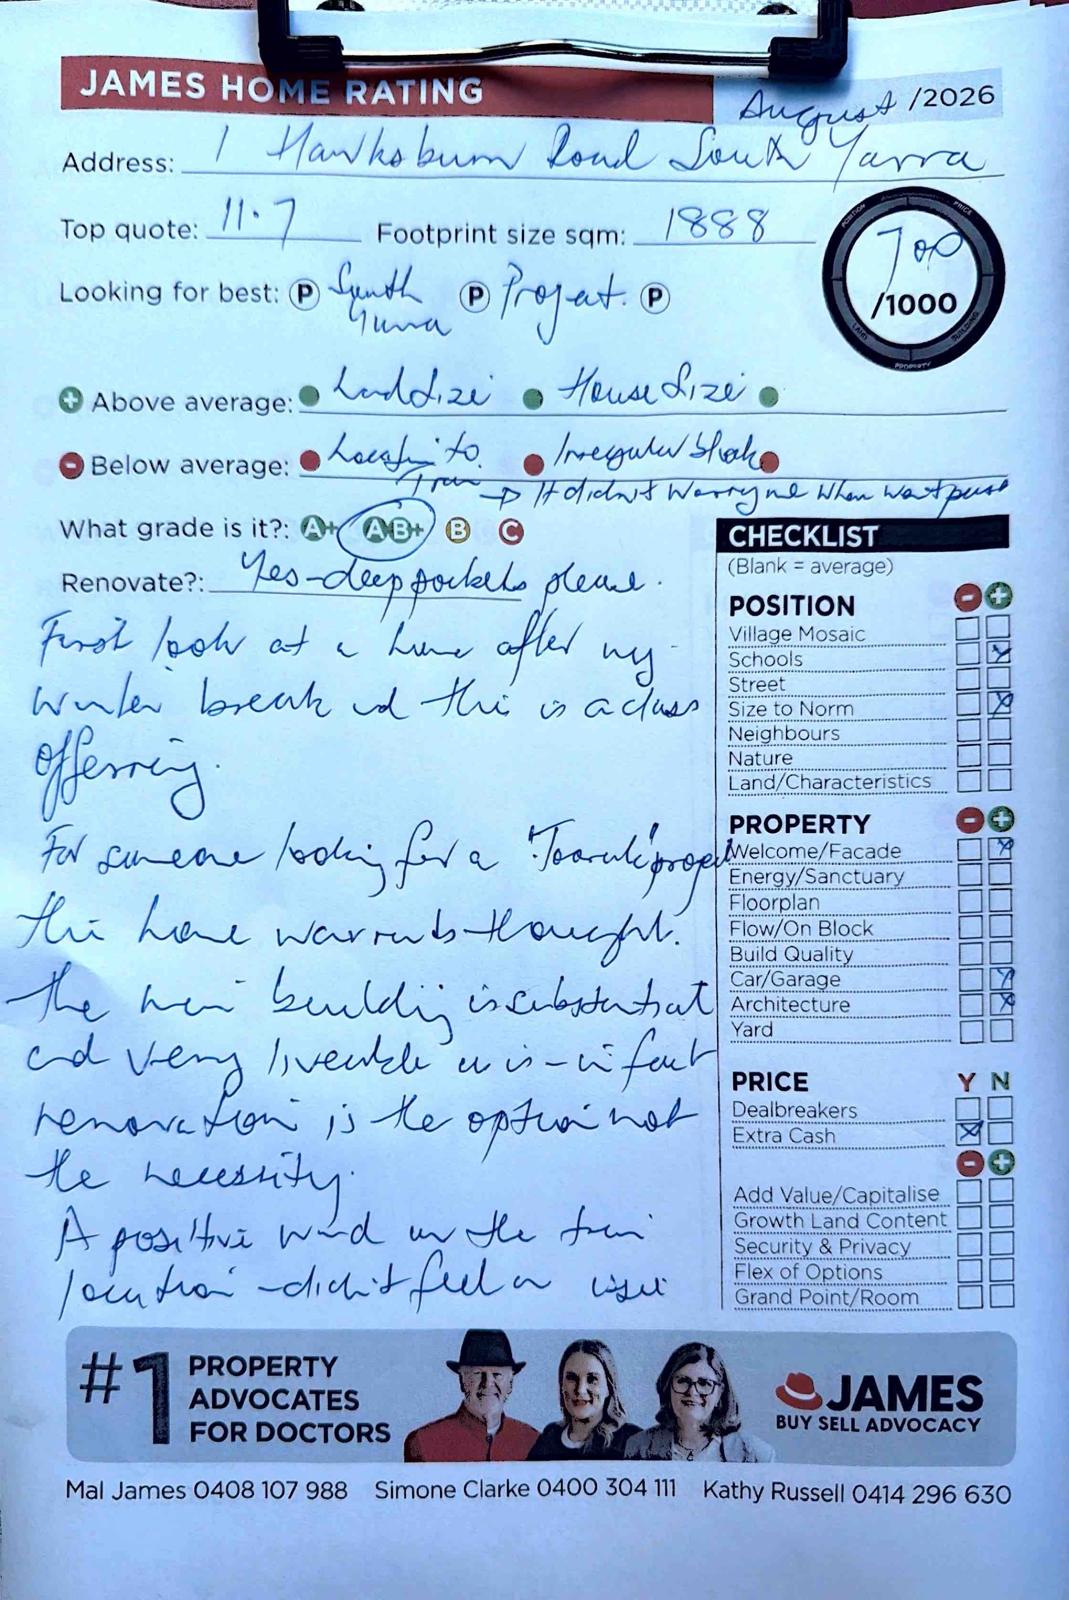 JAMES HOME RATING
August /2026
Address: 1 Hawksburn Road South Yarra
Top quote: 11.7 Footprint size sqm: 1888
POSITION PRICE
LAND BUILDING
PROPERTY
Top
/1000
Looking for best: P South Yarra P Project. P
+ Above average: Land Size House Size
- Below average: Location to Train Irregular block
→ It didn't worry me when went past
What grade is it?: A+ AB+ B C
Renovate?: Yes - deep pockets please.
First look at a home after my
winter break and this is a class
offerring.
For someone looking for a 'Toorak' project
this home warrants thought.
The main building is substantial
and very liveable as is - in fact
renovation is the option not
the necessity.
A positive word on the train
location - didn't feel an issue
CHECKLIST
(Blank = average)
POSITION - +
Village Mosaic
Schools
Street
Size to Norm
Neighbours
Nature
Land/Characteristics
PROPERTY - +
Welcome/Facade
Energy/Sanctuary
Floorplan
Flow/On Block
Build Quality
Car/Garage
Architecture
Yard
PRICE Y N
Dealbreakers
Extra Cash
- +
Add Value/Capitalise
Growth Land Content
Security & Privacy
Flex of Options
Grand Point/Room
#1 PROPERTY
ADVOCATES
FOR DOCTORS
JAMES
BUY SELL ADVOCACY
Mal James 0408 107 988 Simone Clarke 0400 304 111 Kathy Russell 0414 296 630